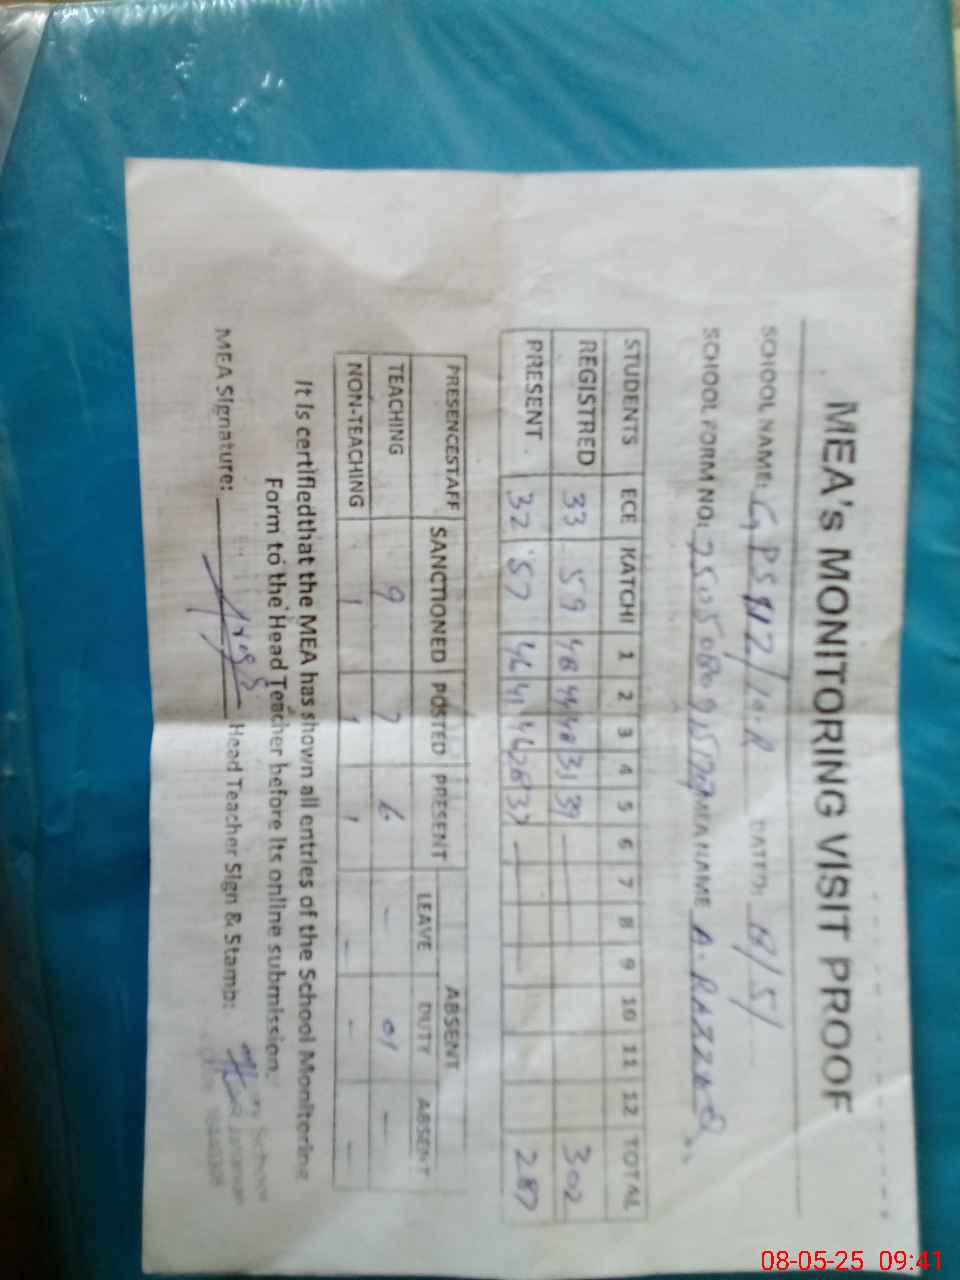 MEA's MONITORING VISIT PROOF
SCHOOL NAME: G PS 112/10.R DATED: 8/5/
SCHOOL FORM NO: MEA NAME A. RAZZAQ
STUDENTS ECE KATCHI 1 2 3 4 5 6 7 8 9 10 11 12 TOTAL
REGISTRED 33 59 48 44 48 31 39 302
PRESENT 32 57 46 41 46 28 37 287
PRESENCESTAFF SANCTIONED POSTED PRESENT ABSENT
LEAVE DUTY ABSENT
TEACHING 9 7 6 - 01 -
NON-TEACHING 1 1 1 - - -
It is certifiedthat the MEA has shown all entries of the School Monitoring
Form to the Head Teacher before its online submission.
MEA Signature: Head Teacher Sign & Stamp:
08-05-25 09:41